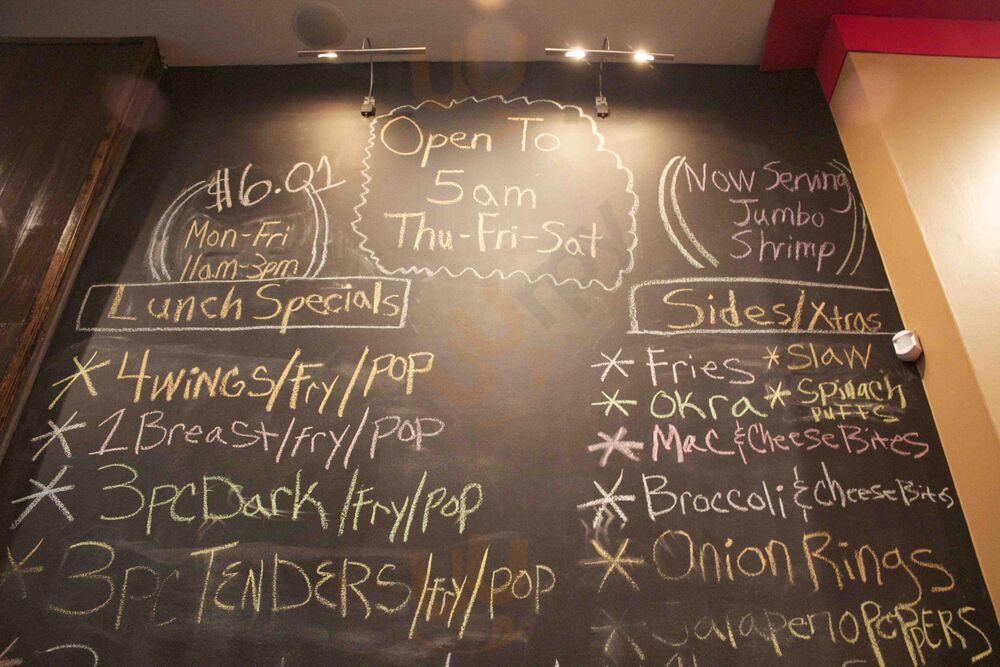 $6.01
Mon-Fri
11am-3pm
Open To
5am
Thu-Fri-Sat
Now Serving
Jumbo
Shrimp
Lunch Specials
* 4 WINGS/Fry/POP
* 1 Breast/Fry/POP
* 3pc Dark/Fry/POP
* 3pc TENDERS/Fry/POP
Sides/Xtras
* Fries * SLAW
* OKRA * Spinach
PUFFS
* Mac & Cheese Bites
* Broccoli & Cheese Bites
* Onion Rings
* Jalapeno POPPERS